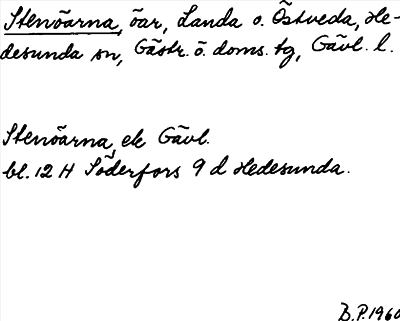 Stenöarna, öar, Landa o. Östveda, He-
desunda sn, Gästr. ö. doms. tg, Gävl. l.
Stenöarna, ek Gävl.
bl. 12 H Söderfors 9 d Hedesunda.
B.P. 1960